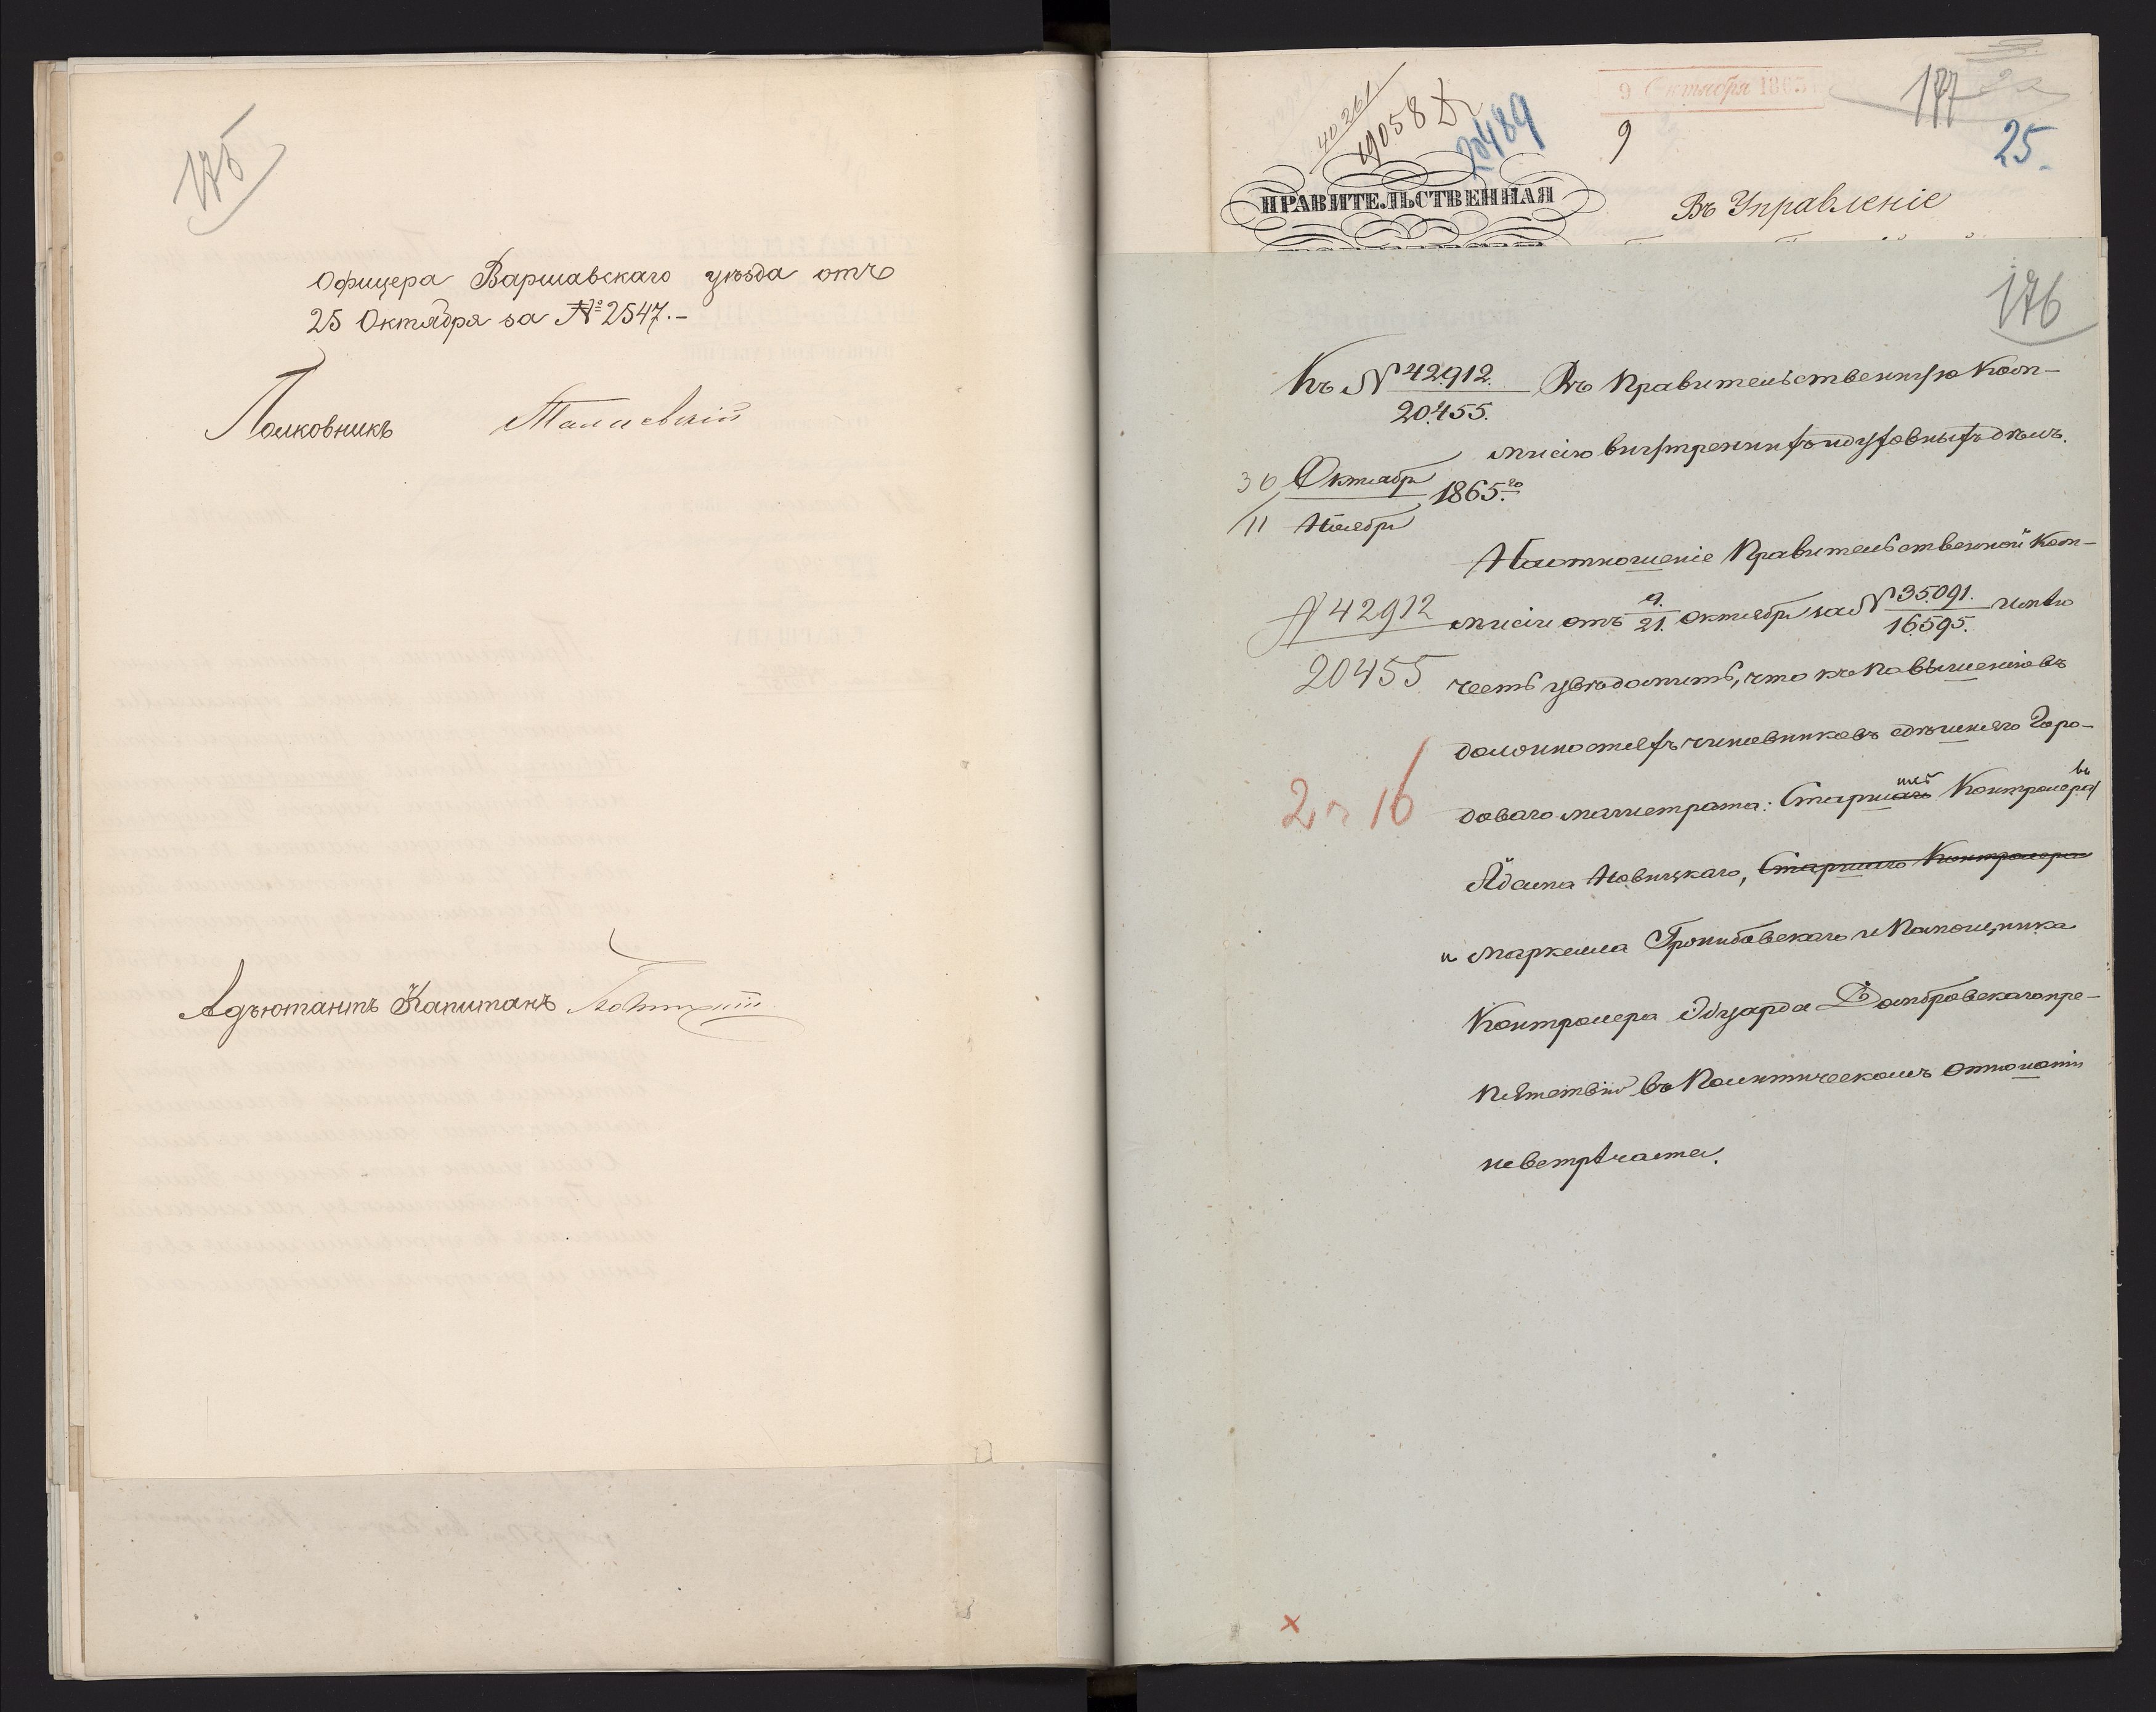 175
Офицера Варшавскаго уѣзда отъ
25 Октября за № 2547.-
Полковникъ
Адъютантъ Капитанъ
40261
19058
20489
9 Октября 1865
9
177
25.
ПРАВИТЕЛЬСТВЕННАЯ
Въ Управленіе
176
Къ № 42912. Въ Правительственную Ком-
20455.
мисію внутреннихъ и духовныхъ дѣлъ.
30 Октября 1865.го
11 Ноября
На отношеніе Правительственной Ком-
№ 42912
мисіи отъ 9./21. Октября за № 35091./16595. имѣю
20455
честь увѣдомить, что къ повышенію въ
должностяхъ чиновниковъ здѣшняго Горо-
2 ч 16
доваго магистрата: Старшихъ Контролеровъ
Адама Новицкаго, Старшаго Контролера
и Маркелла Гронидовскаго и Помощника
Контролера Эдуарда Домбровскаго пре-
пятствій въ Политическомъ отношеніи
не встрѣчается.